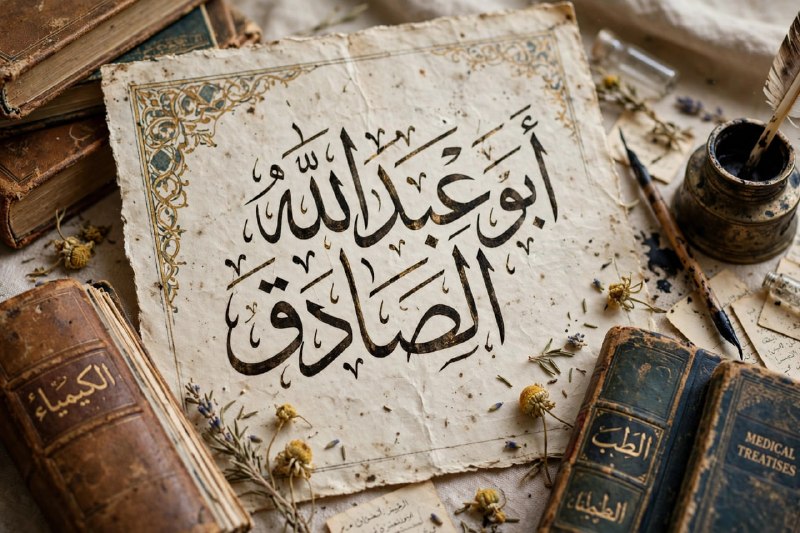 أبو عبد الله
الصادق
الكيمياء
الطب
MEDICAL
TREATISES